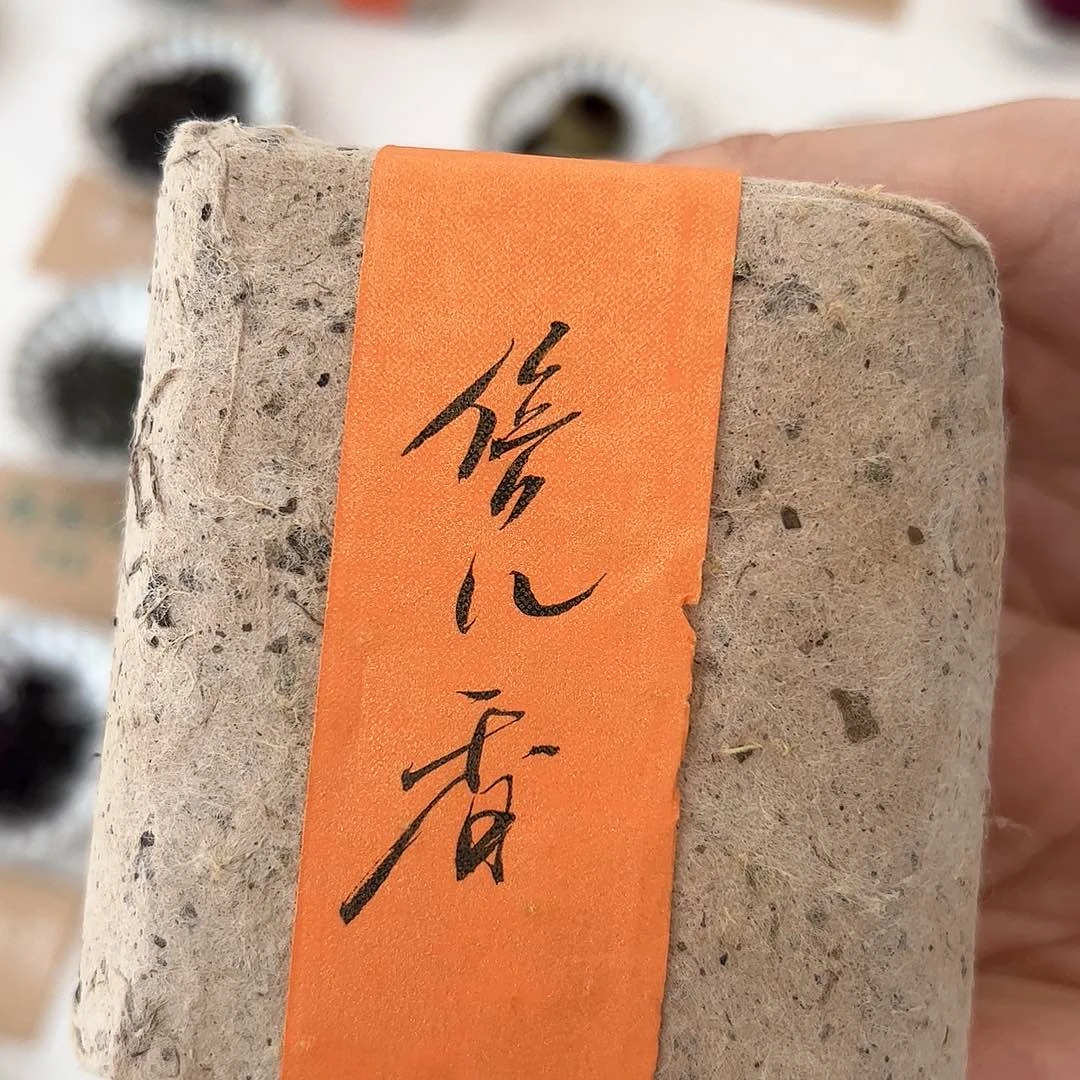 倍儿香